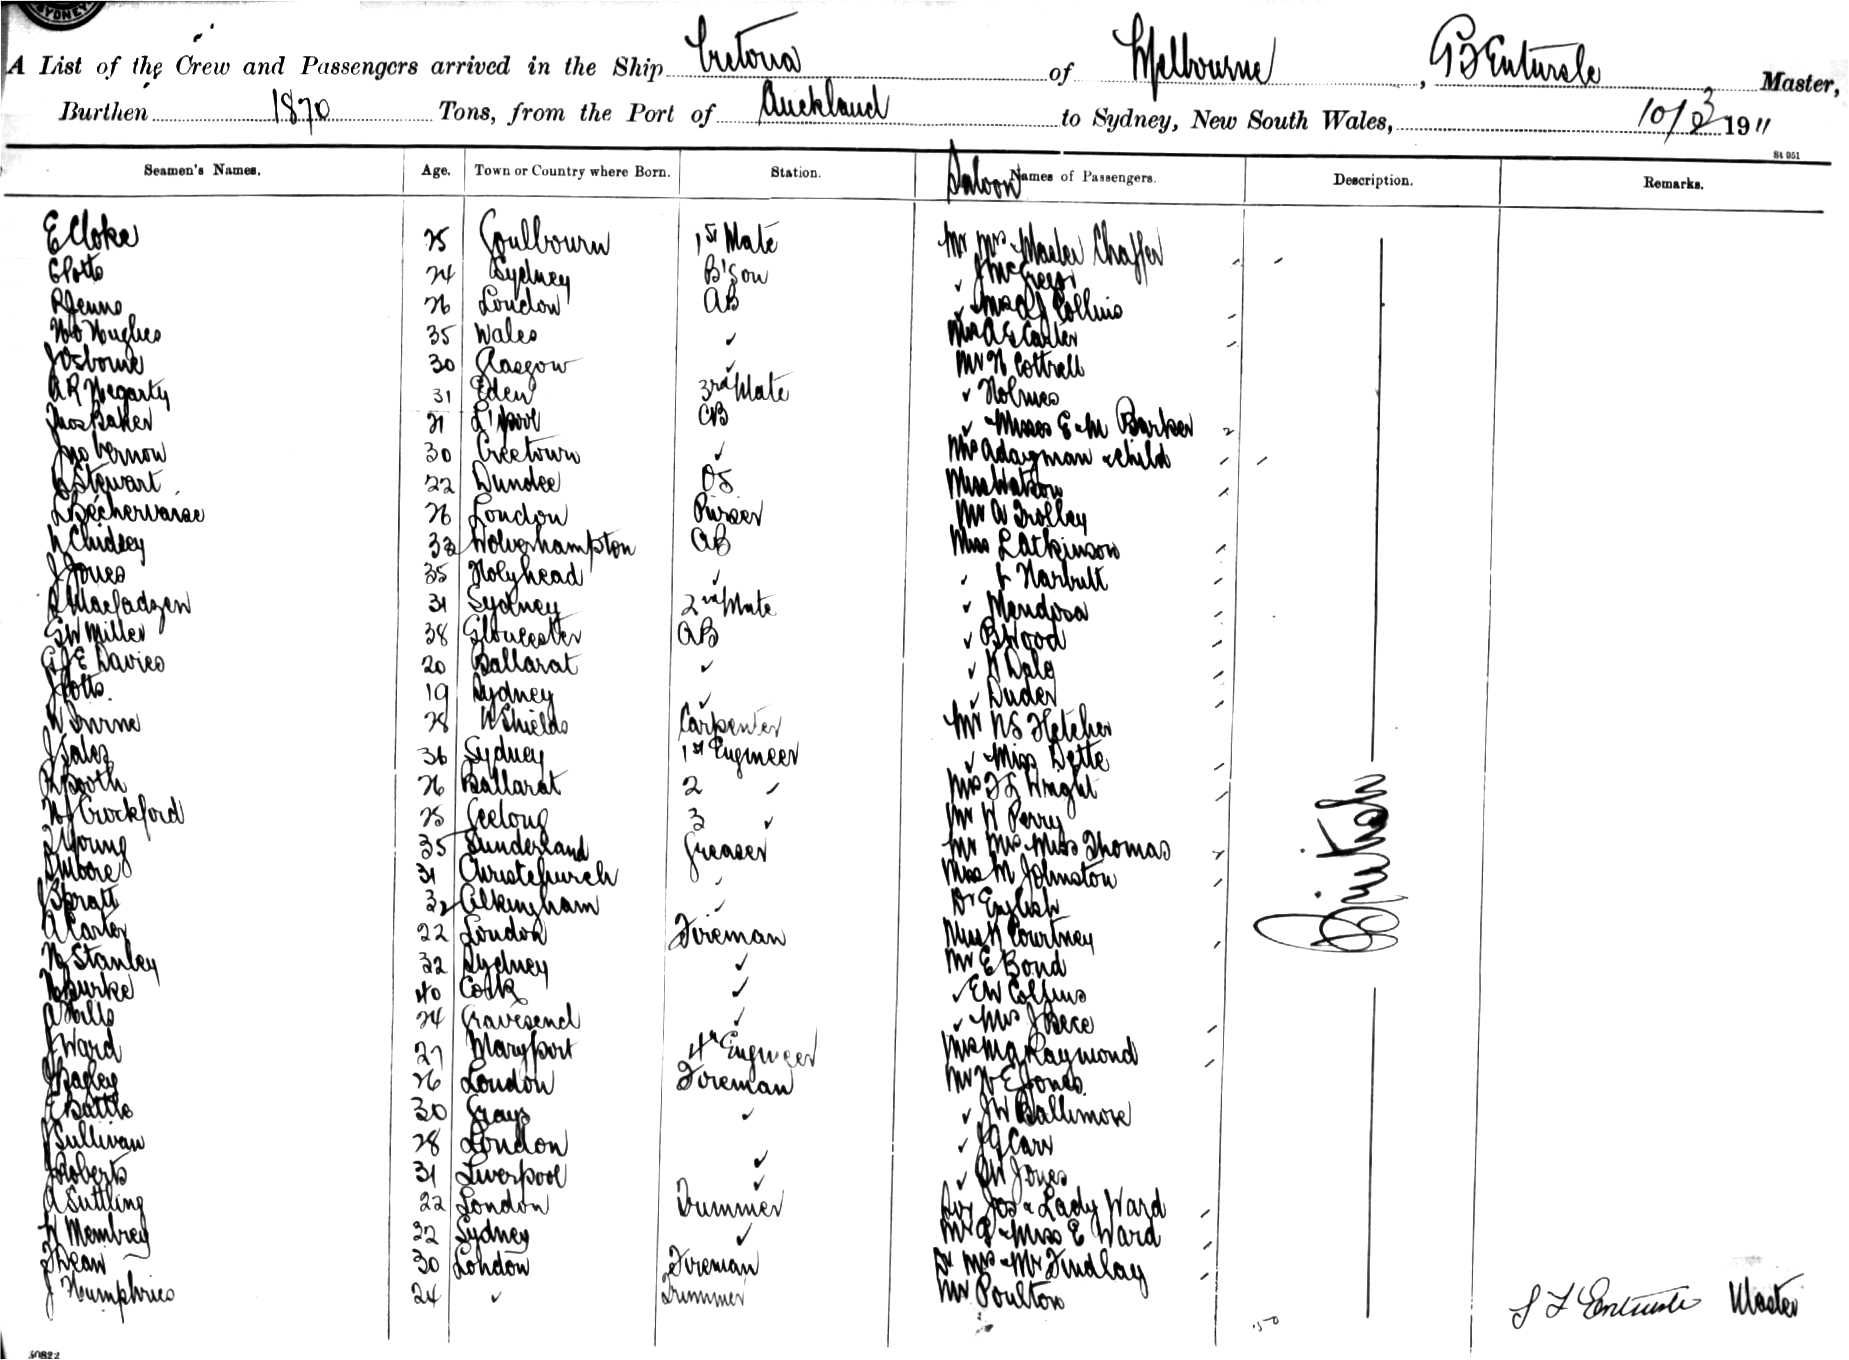 SYDNEY
A List of the Crew and Passengers arrived in the Ship Victoria of Melbourne, Master,
Burthen 1870 Tons, from the Port of Auckland to Sydney, New South Wales, 10/3 1911
St 051
Seamen's Names. Age. Town or Country where Born. Station. Saloon Names of Passengers. Description. Remarks.
E Cloke 25 Goulbourn 1st Mate Mr Mrs & Master Chaffer
E Potts 24 Sydney B'son ✓ J McGregor
26 London AB ✓ Collins
Hughes 35 Wales ✓ Mrs A E Carter
J Osborne 30 Glasgow ✓ Mr H Cottrell
A R Hegarty 31 Eden 3rd Mate ✓ Holmes
Thos Baker 21 L'pool AB ✓ & Misses E & M Barker
Jno Vernon 30 Creetown ✓ Mrs Adagman & child
Stewart 22 Dundee OS Miss Watson
L Béchervaise 26 London Purser Mr A Trolley
Chidzey 32 Wolverhampton AB Miss L Atkinson
J Jones 35 Holyhead ✓ ✓ Harbutt
R Macfadzen 31 Sydney 2nd Mate ✓ Mendosa
G W Miller 38 Gloucester AB ✓ B Wood
G J E Davies 20 Ballarat ✓ ✓ K Dale
J Potts 19 Sydney ✓ ✓ Duder
W Irvine 28 N Shields Carpenter Mr N S Fletcher
36 Sydney 1st Engineer ✓ & Miss Dette
R Booth 26 Ballarat 2 ✓ Wright
Crockford 25 Geelong 3 ✓ Mr W Perry
Young 35 Sunderland Greaser Mr Mrs & Miss Thomas
Moore 31 Christchurch ✓ Miss M Johnston
J Spratt 32 Alkingham ✓ Dr English
A Carter 22 London Fireman Miss K Courtney
Stanley 32 Sydney ✓ Mr E Bond
Burke 40 Cork ✓ ✓ E W Collins
A Hills 24 Gravesend ✓ ✓ & Mrs J Bece
J Ward 27 Maryport 4th Engineer Raymond
J Bagley 26 London Fireman Mr W E Jones
E Battle 30 Grays ✓ ✓ J W Ballimore
J Sullivan 28 London ✓ ✓ J G Carr
J Roberts 31 Liverpool ✓ ✓ Jones
A Suttling 22 London Trimmer Sir Jos & Lady Ward
W Membrey 22 Sydney ✓ Mr & Miss E Ward
T Dean 30 London Fireman Dr Mrs & Mr Findlay
J Humphries 24 ✓ Trimmer Mr Poulton
British
Master
30822